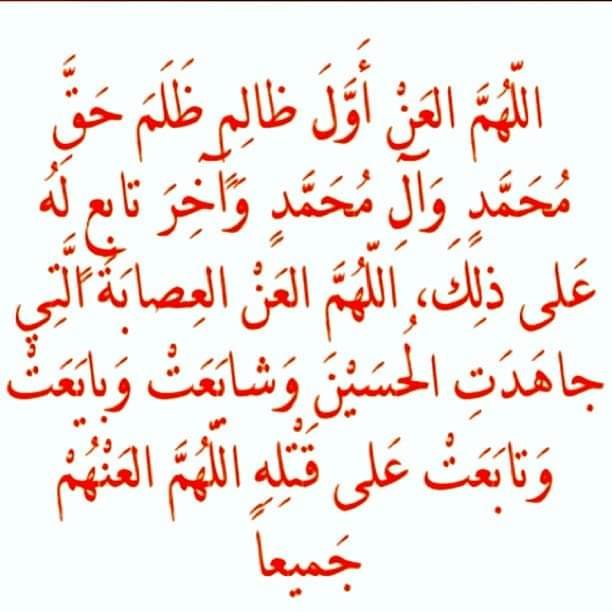 اللّهُمَّ العَنْ أَوَّلَ ظالِمٍ ظَلَمَ حَقَّ
مُحَمَّدٍ وَآلِ مُحَمَّدٍ وَآخِرَ تابِعٍ لَهُ
عَلى ذلِكَ، اللّهُمَّ العَنْ العِصابَةَ الَّتِي
جاهَدَتِ الحُسَيْنَ وَشايَعَتْ وَبايَعَتْ
وَتابَعَتْ عَلى قَتْلِهِ اللّهُمَّ العَنْهُمْ
جَمِيعاً